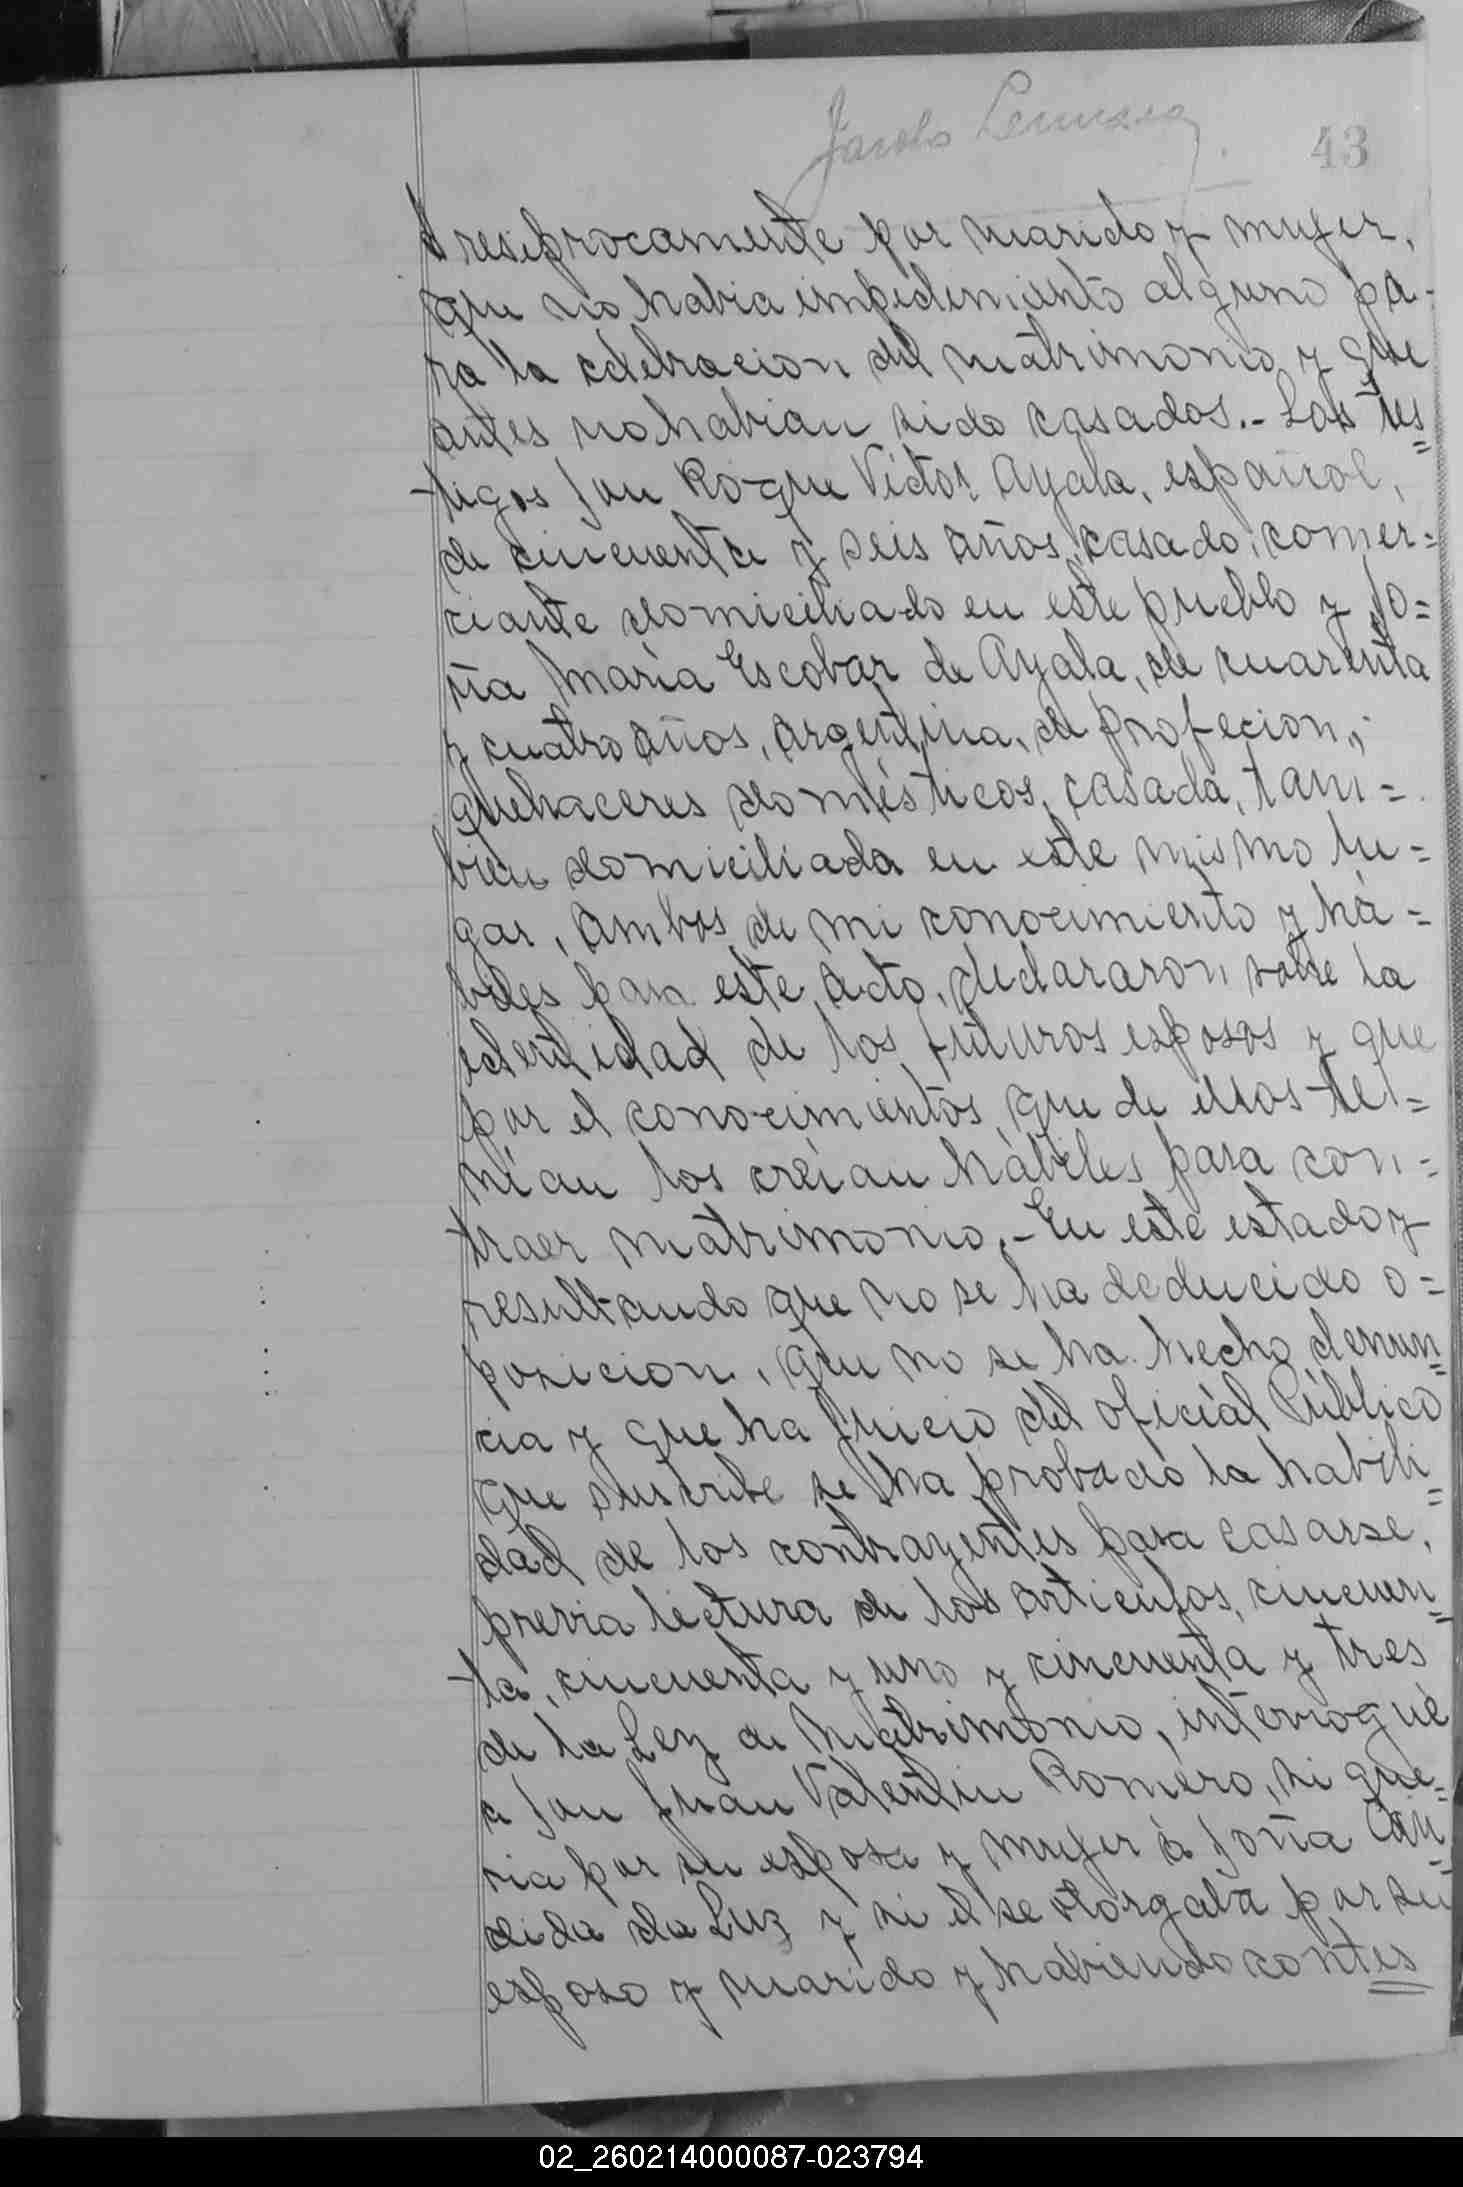 Jacobo
43
reseprocamente por marido y mujer,
que no habia empedimiento alguno pa-
ra la celebracion del matrimonio y que
antes no habian sido casados.- Los tes=
tigos Don Roque Victor Ayala, español,
de cincuenta y seis años, casado, comer=
ciante domiciliado en este pueblo y Do=
ña María Escobar de Ayala, de cuarenta
y cuatro años, argentina, de profecion,
quehaceres domésticos, casada, tam=
bien domiciliada en este mismo lu=
gar, ambos de mi conocimiento y há=
biles para este acto, declararon sobre la
edentidad de los futuros esposos y que
por el conocimientos que de ellos te=
nian los creían hábiles para con=
traer matrimonio.- En este estado y
resultando que no se ha deducido o=
posicion, que no se ha hecho denun=
cia y que ha Juicio del oficial Público
que suscribe se ha probado la habili=
dad de los contrayentes para casarse,
previa lectura de los articulos, cincuen=
ta, cincuenta y uno y cincuenta y tres
de la Ley de Matrimonio, interrogué
a Don Juan Valentin Romero, si que=
ria por su esposa y mujer á Doña Cán=
dida da Luz y si el se otorgaba por su
esposo y marido y habiendo contes
02_260214000087-023794